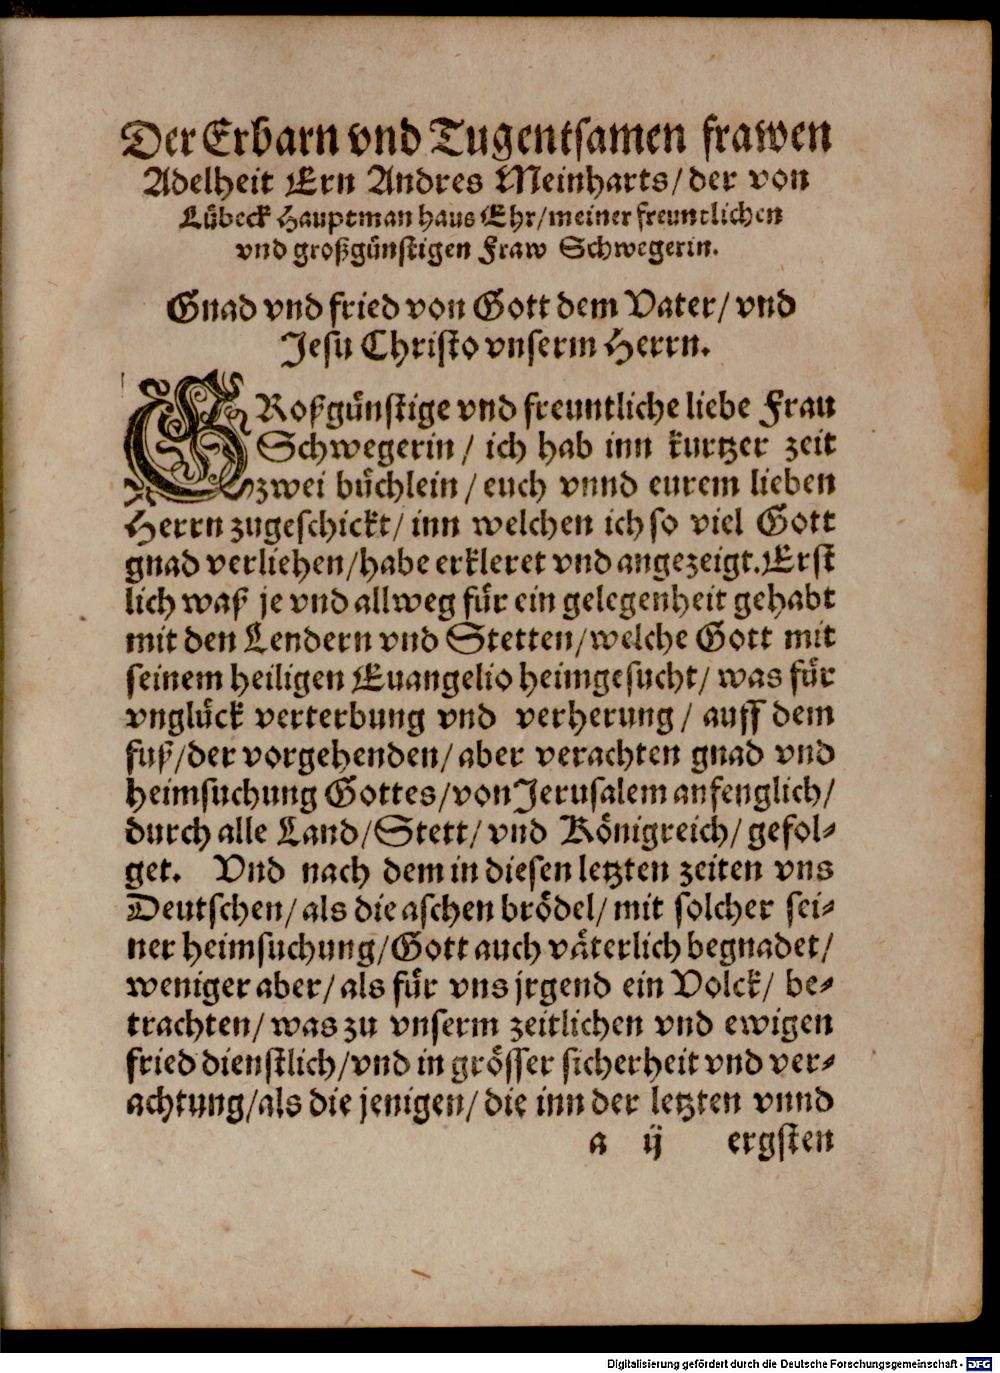 Der Erbarn vnd Tugentsamen frawen
Adelheit Ern Andres Meinharts/ der von
Lübeck Hauptman haus Ehr/ meiner freuntlichen
vnd großgünstigen Fraw Schwegerin.
Gnad vnd fried von Gott dem Vater/ vnd
Jesu Christo vnserm Herrn.
GRoßgünstige vnd freuntliche liebe Frau
Schwegerin/ ich hab inn kurtzer zeit
zwei büchlein/ euch vnnd eurem lieben
Herrn zugeschickt/ inn welchen ich so viel Gott
gnad verliehen/ habe erkleret vnd angezeigt. Erst
lich waß je vnd allweg für ein gelegenheit gehabt
mit den Lendern vnd Stetten/ welche Gott mit
seinem heiligen Euangelio heimgesucht/ was für
vnglück verterbung vnd verherung/ auff dem
fuß/ der vorgehenden/ aber verachten gnad vnd
heimsuchung Gottes/ von Jerusalem anfenglich/
durch alle Land/ Stett/ vnd Königreich/ gefol-
get. Vnd nach dem in diesen letzten zeiten vns
Deutschen/ als die aschen brödel/ mit solcher sei-
ner heimsuchung/ Gott auch väterlich begnadet/
weniger aber/ als für vns jrgend ein Volck/ be-
trachten/ was zu vnserm zeitlichen vnd ewigen
fried dienstlich/ vnd in grösser sicherheit vnd ver-
achtung/ als die jenigen/ die inn der letzten vnnd
a ij ergsten
Digitalisierung gefördert durch die Deutsche Forschungsgemeinschaft - DFG